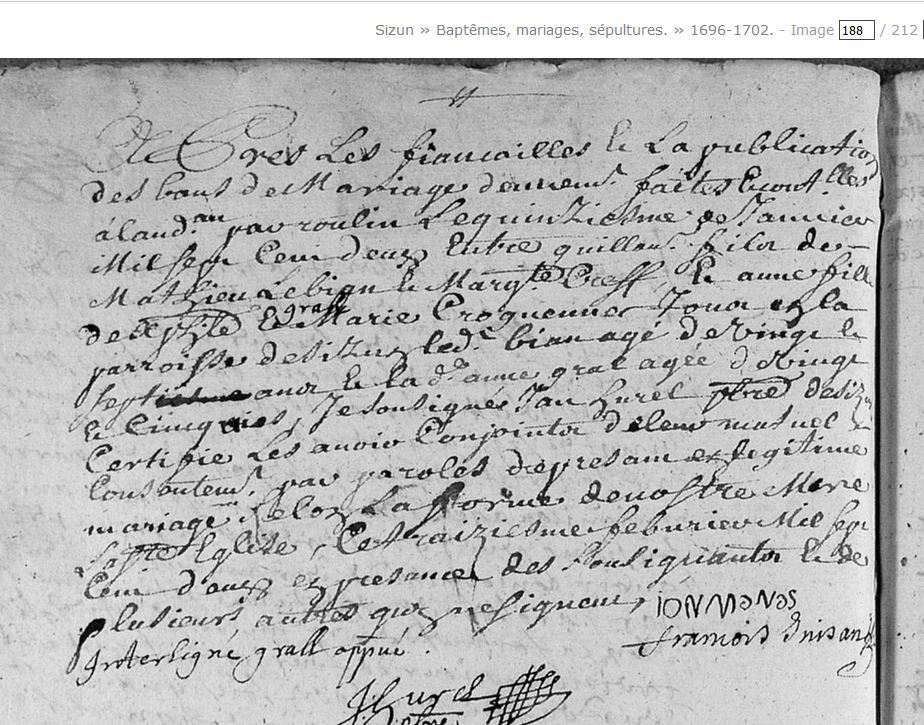 Sizun » Baptêmes, mariages, sépultures. » 1696-1702. - Image 188 / 212
Apres Les fiancailles Et La publication
des bans de Mariage faites
par roulin Le quinziesme de Janvier
Mil sept Cent deux Entre guillau. fils de
Mathieu Lebian Et Margte Creff, Et anne fille
de grall Et Marie Croguennec Tous en la
parroisse de Sizun led. bian agé de Vingt Et
sept ans Et la de. anne gral agée de Vingt
Et Cinq ans, Je sousigné Jan hurel ptre de Sizun
Certifie Les avoir Conjoints de leur mutuel
Consentem. par paroles de presant en legitime
mariage selon La forme de nostre Mere
Ste Eglise, Ce traiziesme febvrier Mil sept
Cent deux en presance des Sousignants Et de
plusieurs autres qui ne signent,
ION MANAS
francois
Interligné grall appvé.
J: hurel
ptre